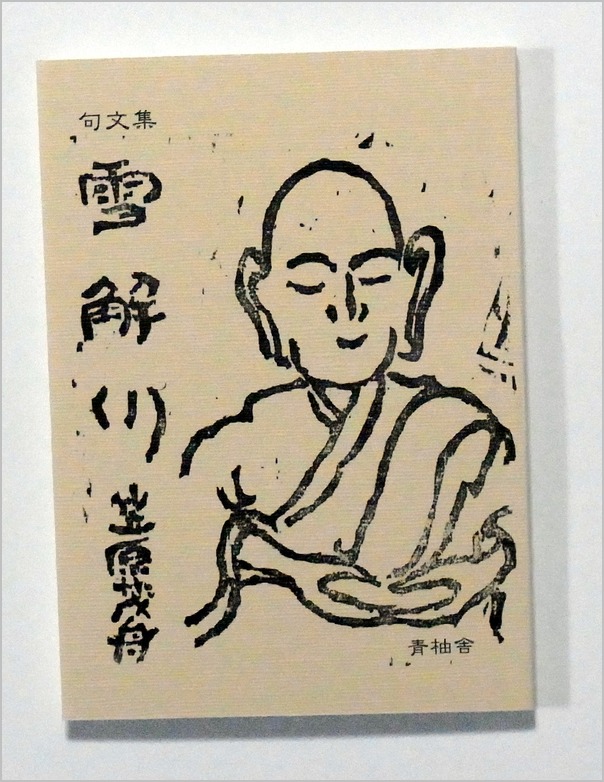 句文集
雪解川
笠原茂舟
青柚舎